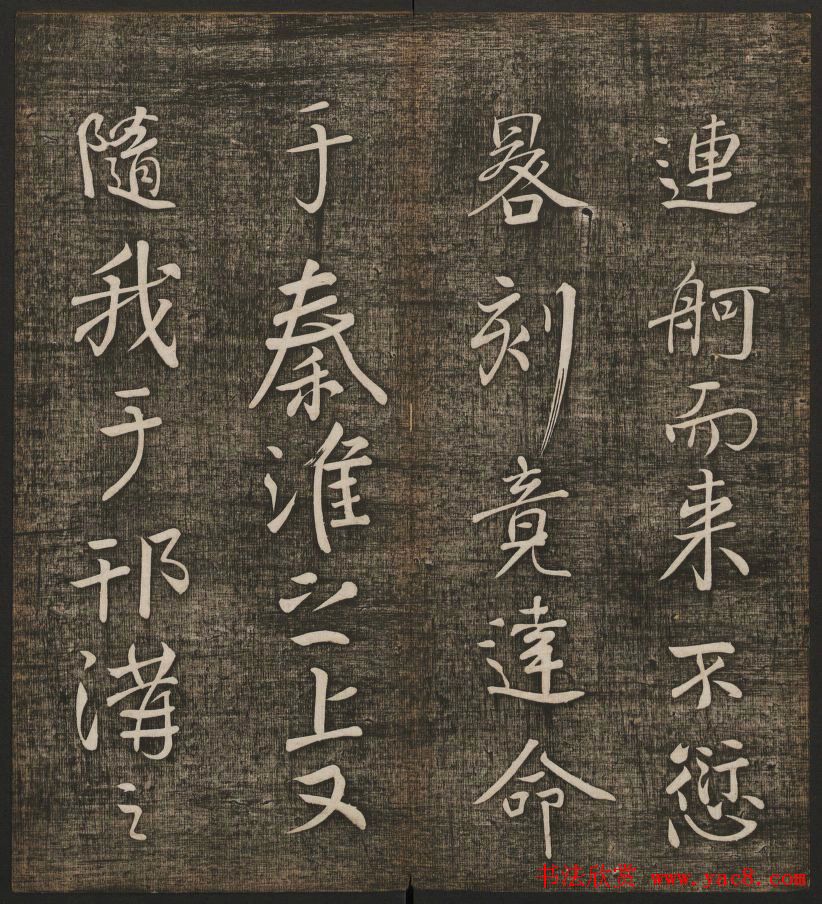 連舸而来不愆
晷刻竟達命
于秦淮之上又
隨我于邗溝之
书法欣赏 www.yac8.com